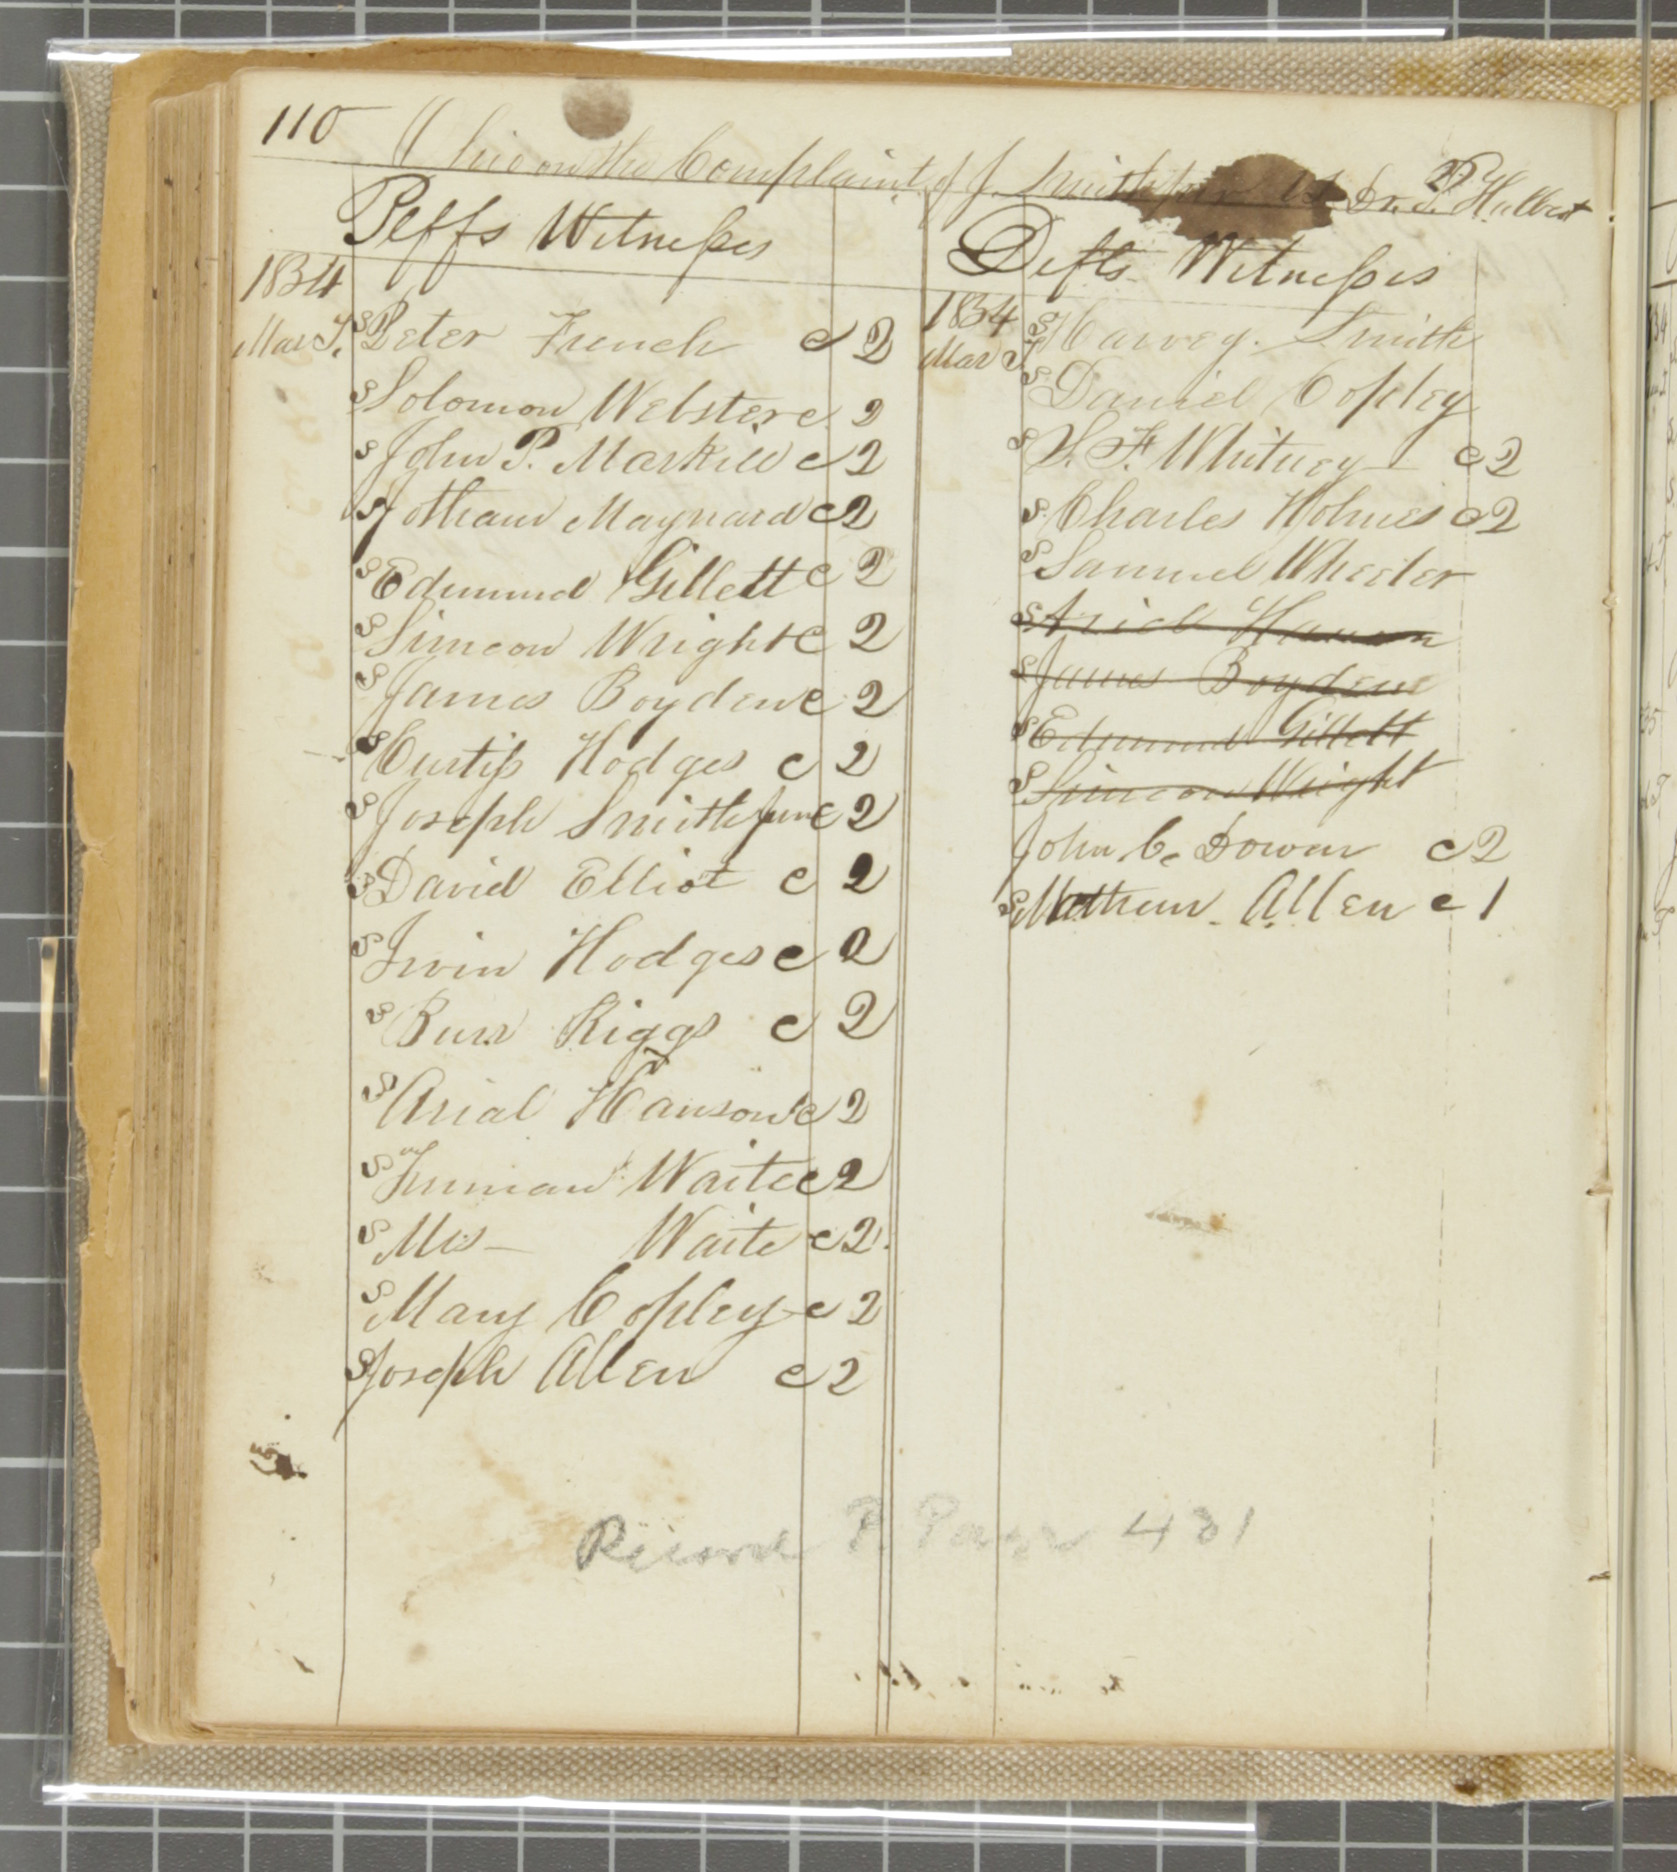 110 Ohio on the Complaint of J. Smith jun vs Dr. P. Hulbert
Plffs Witnesses
1834
Mar T. S Peter French c 2
S Solomon Webster c 2
S John P. Markill c 2
S Jotham Maynard c 2
S Edmund Gillett c 2
S Simeon Wright c 2
S James Boyden c 2
S Curtiss Hodges c 2
S Joseph Smith Jun c 2
S David Elliot c 2
S Irvin Hodges c 2
S Burr Riggs c 2
S Arial Hanson c 2
S Truman Waite c 2
S Mrs — Waite c 2
S Mary Copley c 2
S Joseph Allen c 2
Defts Witnesses
1834
Mar T S Harvey Smith
S Daniel Copley
S S. F. Whitney c 2
S Charles Holmes c 2
S Samuel Wheeler
S Ariel Hanson
S James Boyden
S Edmund Gillett
S Simeon Wright
John C. Dowen c 2
S Mathew Allen c 1
Record P. Page 431